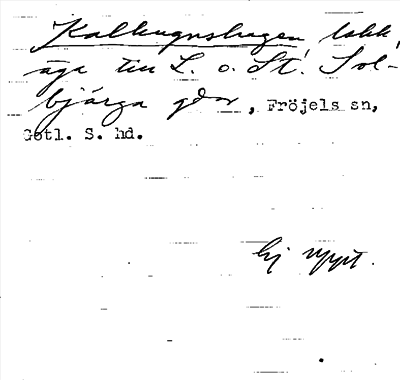 Kalkugnshagen, lokk,
äga till L. o. St. Sol-
bjärga gdar, Fröjels sn,
Gotl. S. hd.
Ej nypt.